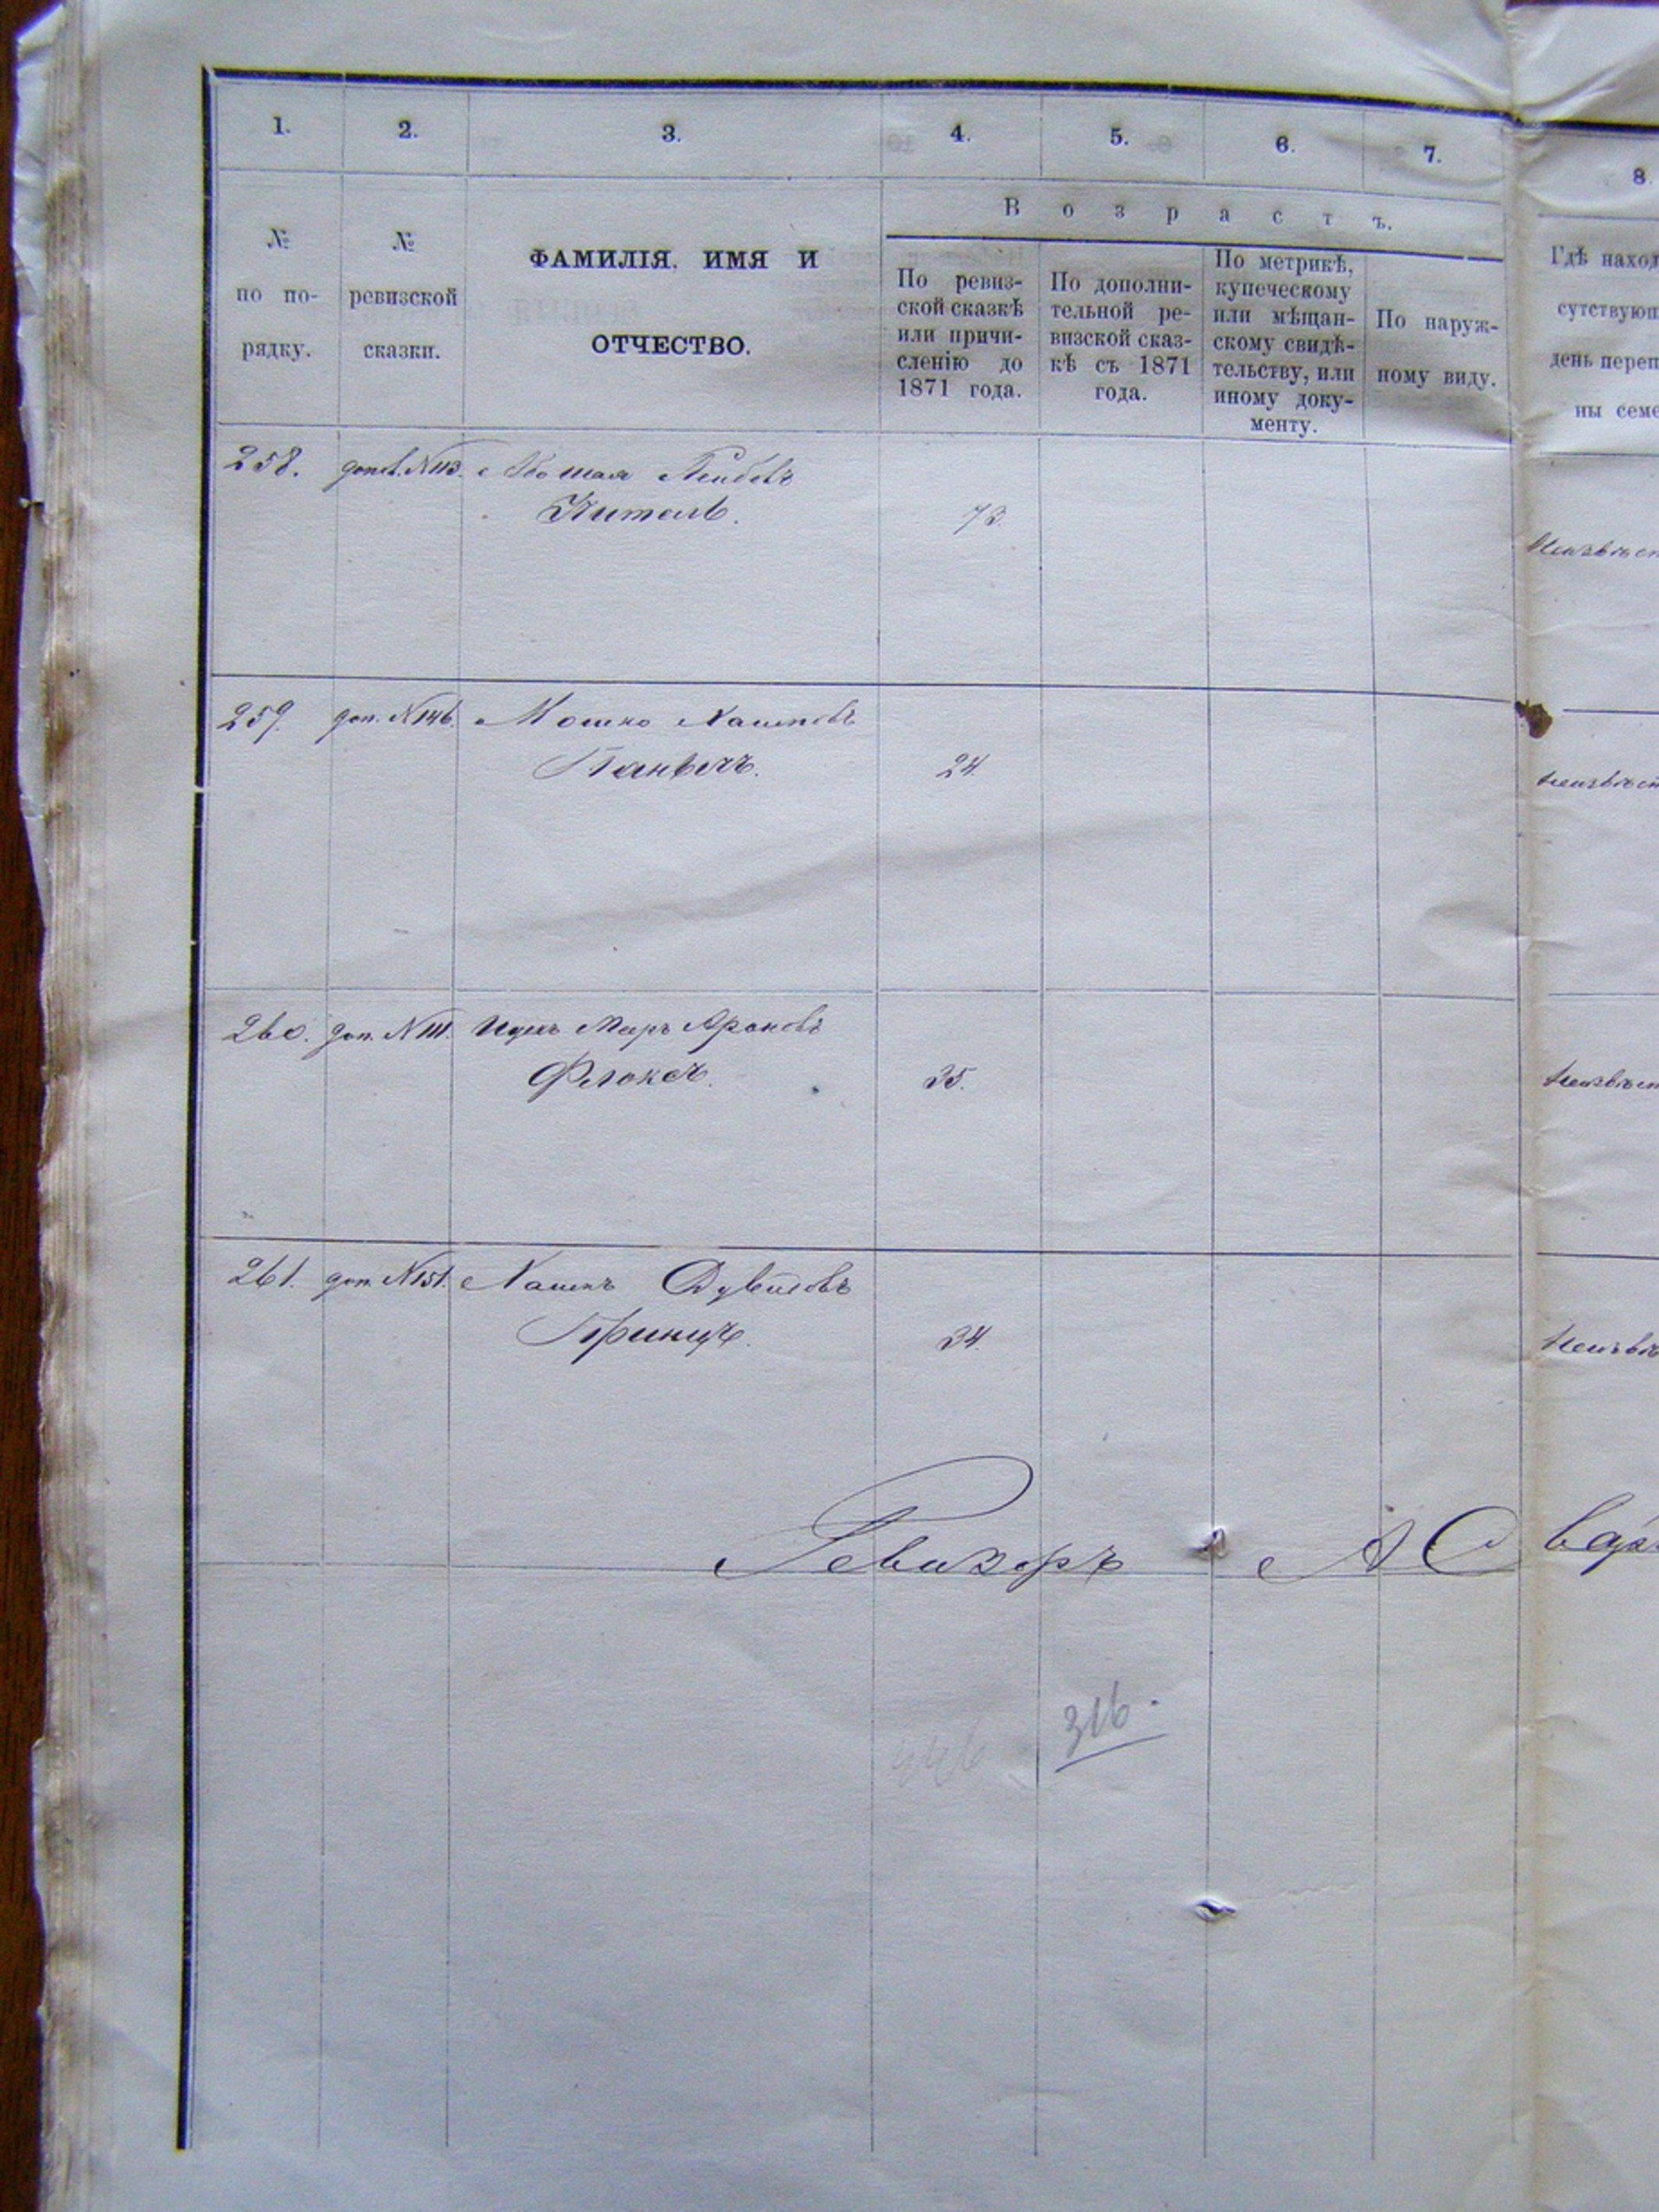 1. 2. 3. 4. 5. 6. 7. 8.
В о з р а с т ъ.
№ по по-
рядку.
№
ревизской
сказки.
ФАМИЛІЯ, ИМЯ И
ОТЧЕСТВО.
По ревиз-
ской сказкѣ
или причи-
сленію до
1871 года.
По дополни-
тельной ре-
визской сказ-
кѣ съ 1871
года.
По метрикѣ,
купеческому
или мѣщан-
скому свидѣ-
тельству, или
иному доку-
менту.
По наруж-
ному виду.
Гдѣ наход
сутствующ
день переп
ны семе
258. N113. Лейбовъ
Киталь. 73
Неизвѣст
259. доп. N146. Мошко
24.
неизвѣст
260. доп. N111. Ицекъ Меръ Ароновъ
Флоксъ. 35.
неизвѣст
261. доп. N151. Дувидовъ
Принцъ. 34.
Неизвѣ
Ревизоръ А С
316.